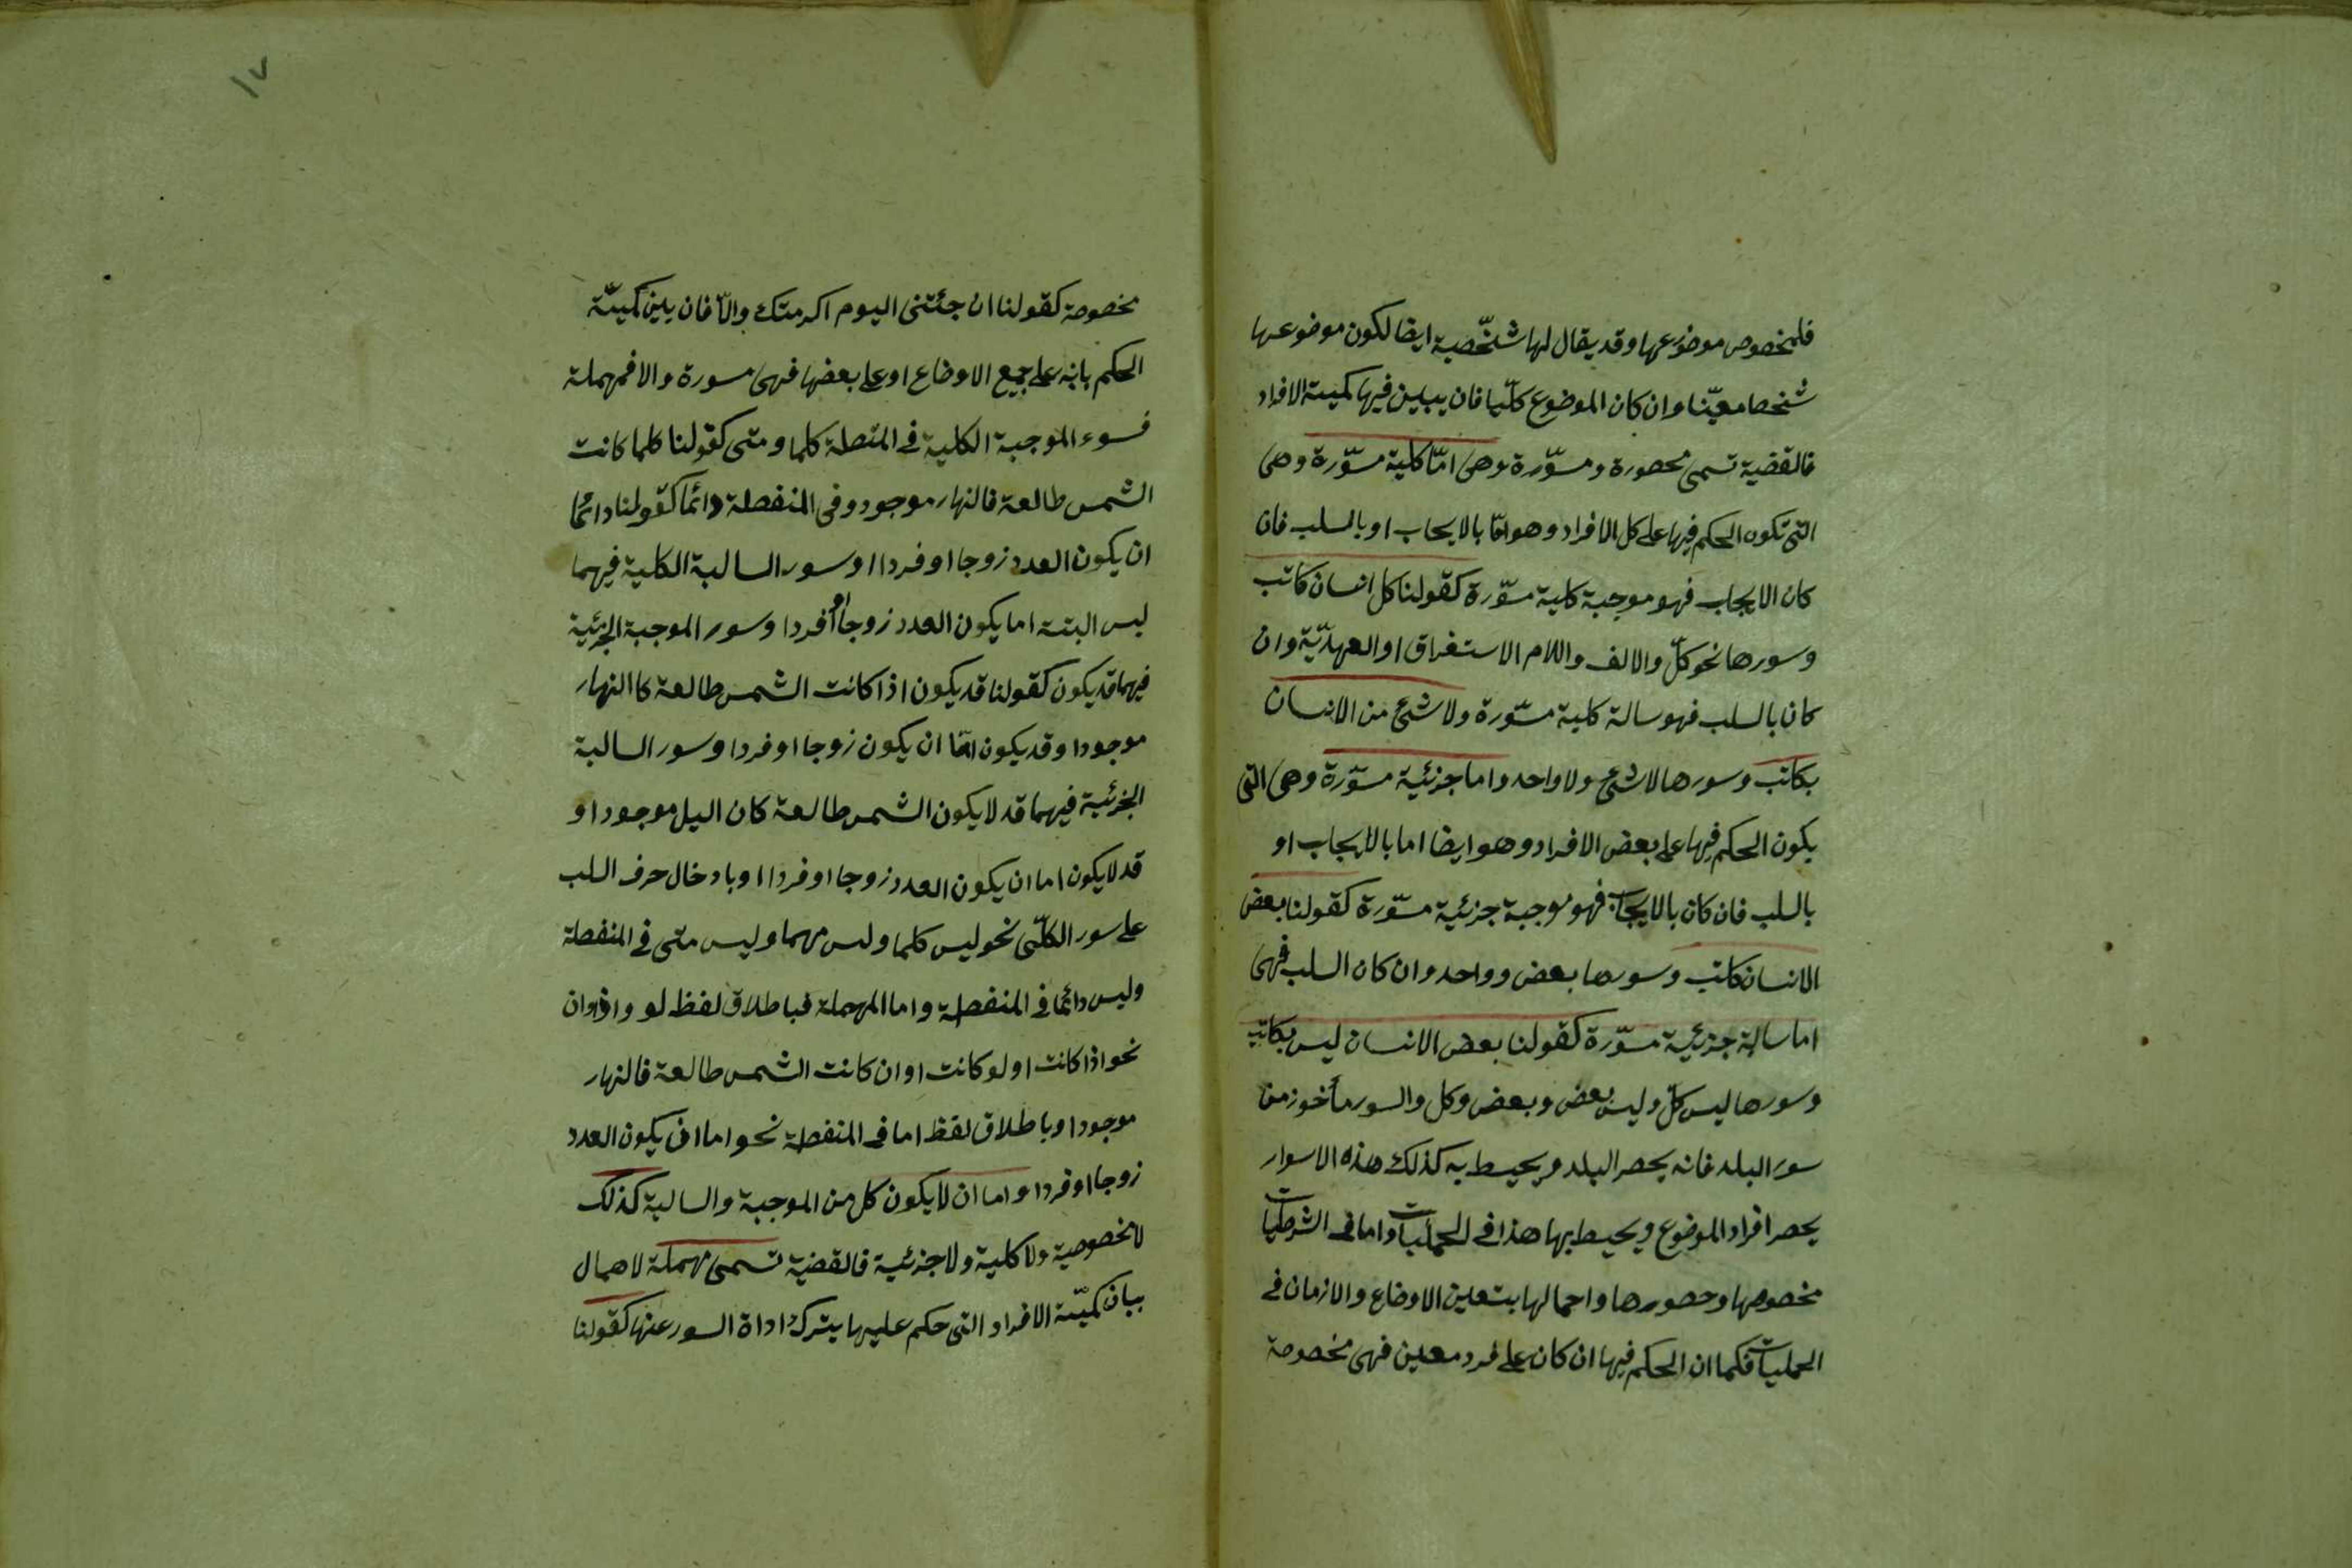 فلمخصوص موضوعها وقد يقال لها شخّصية ايضا لكون موضوعها
شخصا معيّنا وان كان الموضوع كلّيا فان يبين فيها كمية الافراد
فالقضية تسمى محصورة ومسوّرة وهى امّا كلية مسوّرة وهى
التى تكون الحكم فيها على كل الافراد وهو امّا بالايجاب او بالسلب فان
كان الايجاب فهو موجبة كلية مسوّرة كقولنا كل انسان كاتب
وسورها نحو كلّ والالف واللام الاستغراق او العهديّة وان
كان بالسلب فهو سالبة كلية مسوّرة ولا شئ من الانسان
بكاتب وسورها لا شئ ولا واحد واما جزئية مسوّرة وهى التى
يكون الحكم فيها على بعض الافراد وهو ايضا اما بالايجاب او
بالسلب فان كان بالايجاب فهو موجبة جزئية مسوّرة كقولنا بعض
الانسان كاتب وسورها بعض وواحد وان كان السلب فهى
اما سالبة جزئية مسوّرة كقولنا بعض الانسان ليس بكاتب
وسورها ليس كلّ وليس بعض وبعض وكل والسور مأخوز من
سور البلد فانه يحصر البلد ويحيط به كذلك هذه الاسوار
يحصر افراد الموضوع ويحيط بها هذا فى الحمليات واما فى الشرطيات
مخصوصها وحصورها واجمالها بتعين الاوضاع والازمان فى
الحمليات فكما ان الحكم فيها ان كان على فرد معين فهى مخصوصة
١٧
مخصوصة كقولنا ان جئتنى اليوم اكرمتك والّا فان يبين كميّة
الحكم بانه على جميع الاوضاع او على بعضها فهى مسورة والا فمهملة
فسوء الموجبة الكلية فى المتصلة كلما ومتى كقولنا كلما كانت
الشمس طالعة فالنهار موجود وفى المنفصلة دائما كقولنا دائما
ان يكون العدد زوجا او فردا او سور السالبة الكلية فيهما
ليس البتة اما يكون العدد زوجا او فردا وسور الموجبة الجزئية
فيهما قد يكون كقولنا قد يكون اذا كانت الشمس طالعة كا النهار
موجودا وقد يكون امّا ان يكون زوجا او فردا وسور السالبة
الجزئية فيهما قد لا يكون الشمس طالعة كان اليل موجودا و
قد لا يكون اما ان يكون العدد زوجا او فردا او بادخال حرف السلب
على سور الكلّى نحو ليس كلما وليس مهما وليس متى فى المنفصلة
وليس دائما فى المنفصلة واما المهملة فباطلاق لفظ لو واذا وان
نحو اذا كانت او لو كانت او ان كانت الشمس طالعة فالنهار
موجودا وباطلاق لفظ اما فى المنفصلة نحو اما ان يكون العدد
زوجا او فردا واما ان لا يكون كل من الموجبة والسالبة كذلك
لا مخصوصية ولا كلية ولا جزئية فالقضية تسمى مهملة لاهمال
بيان كميّة الافراد التى حكم عليها بترك اداة السور عنها كقولنا